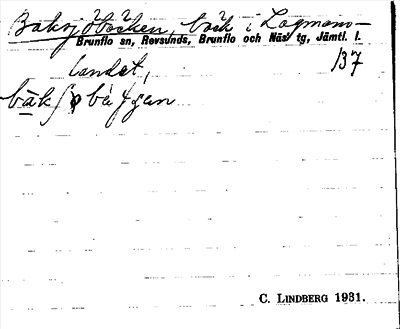 Baksjöbäcken bäck i Lagmans-
Brunflo sn, Revsunds, Brunflo och Näs tg, Jämtl. l.
landet, 137
C. LINDBERG 1931.